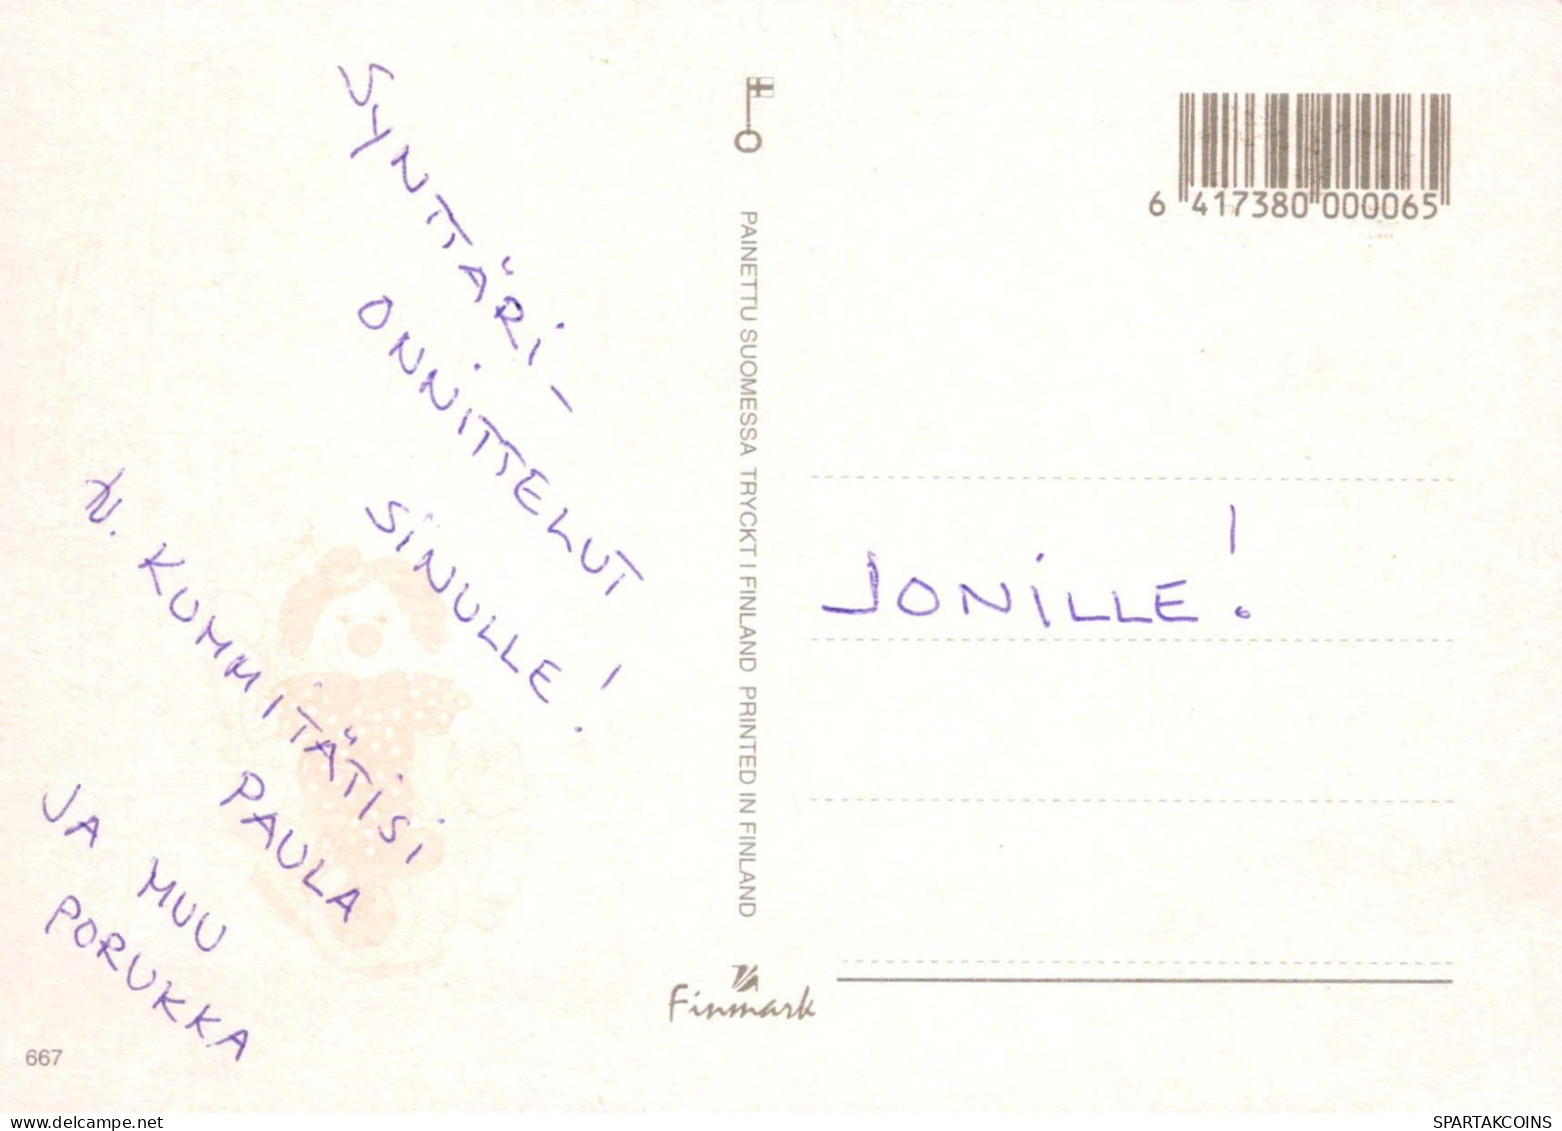 SYNTTÄRI-
ONNITTELUT
SINULLE!
KUMMITÄTISI
PAULA
JA MUU
PORUKKA
667
PAINETTU SUOMESSA TRYCKT I FINLAND PRINTED IN FINLAND
Finmark
6 417380 000065
JONILLE!
SPARTAKCOINS